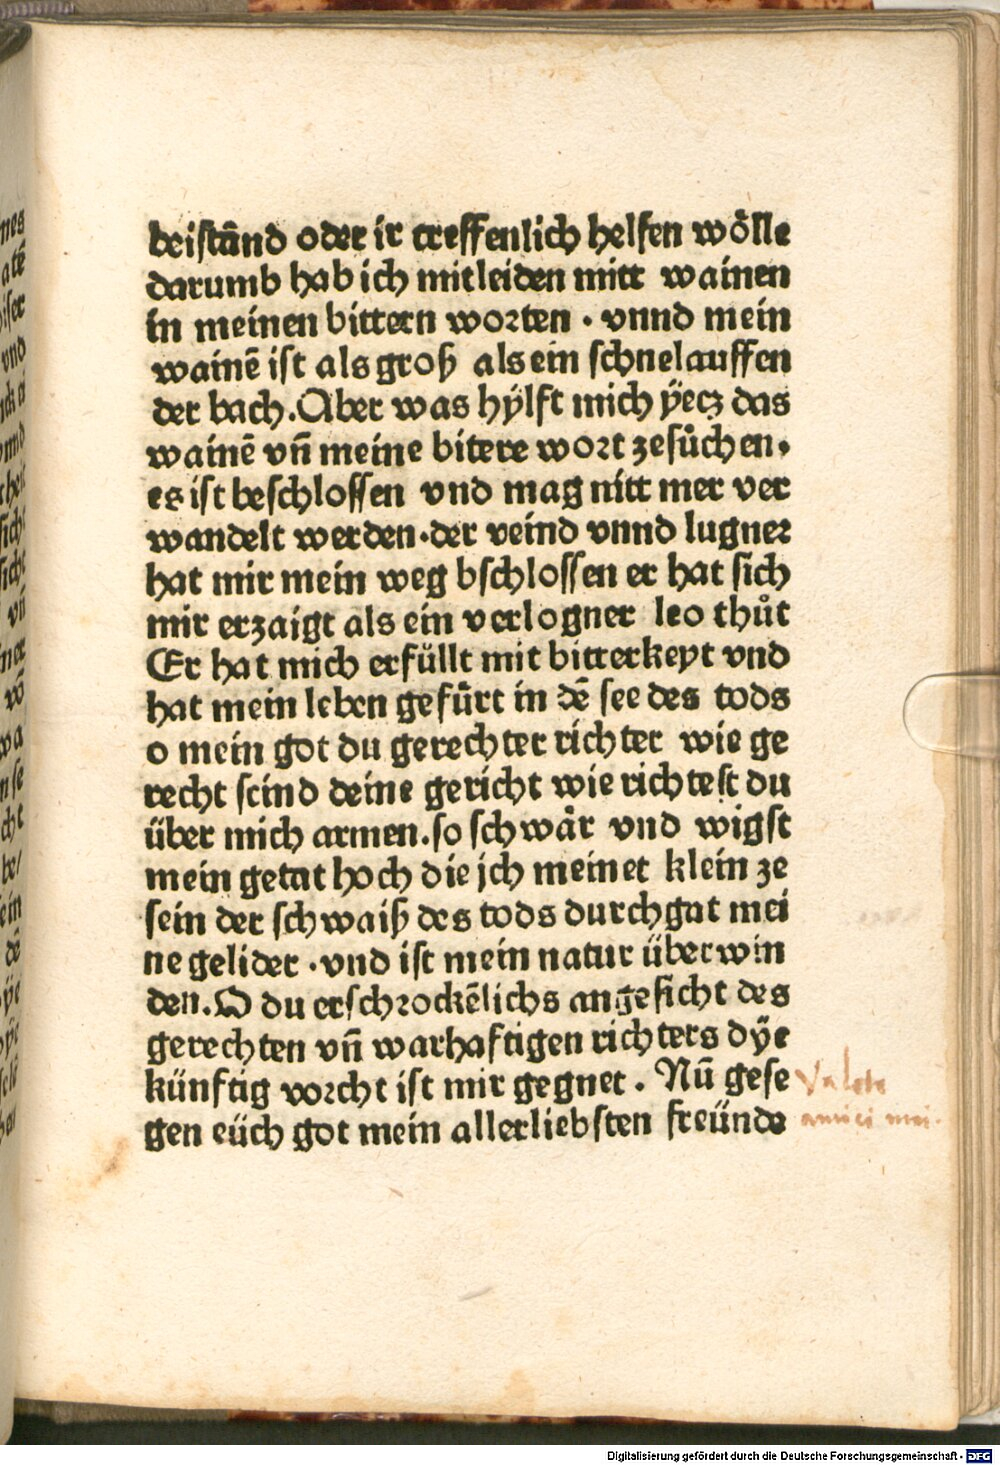 beistānd oder ir treffenlich helfen wölle
darumb hab ich mitleiden mitt wainen
in meinen bittern worten · vnnd mein
wainē ist als groß als ein schnelauffen
der bach. Aber was hÿlft mich ÿecz das
wainē vn̄ meine bitere wort zesůchen.
es ist beschlossen vnd mag nitt mer ver
wandelt werden · der veind vnnd lugner
hat mir mein weg bschlossen er hat sich
mir erzaigt als ein verlogner leo thůt
Er hat mich erfüllt mit bitterkeyt vnd
hat mein leben gefürt in dē see des tods
o mein got du gerechter richter wie ge
recht seind deine gericht wie richtest du
über mich armen. so schwår vnd wigst
mein getat hoch die jch meinet klein ze
sein der schwaiß des tods durchgat mei
ne gelider · vnd ist mein natur überwin
den. O du erschrockēlichs angesicht des
gerechten vn̄ warhaftigen richters dÿe
künftig vorcht ist mir gegnet . Nū gese
gen eüch got mein allerliebsten freünde
Valete
amici mei.
Digitalisierung gefördert durch die Deutsche Forschungsgemeinschaft - DFG